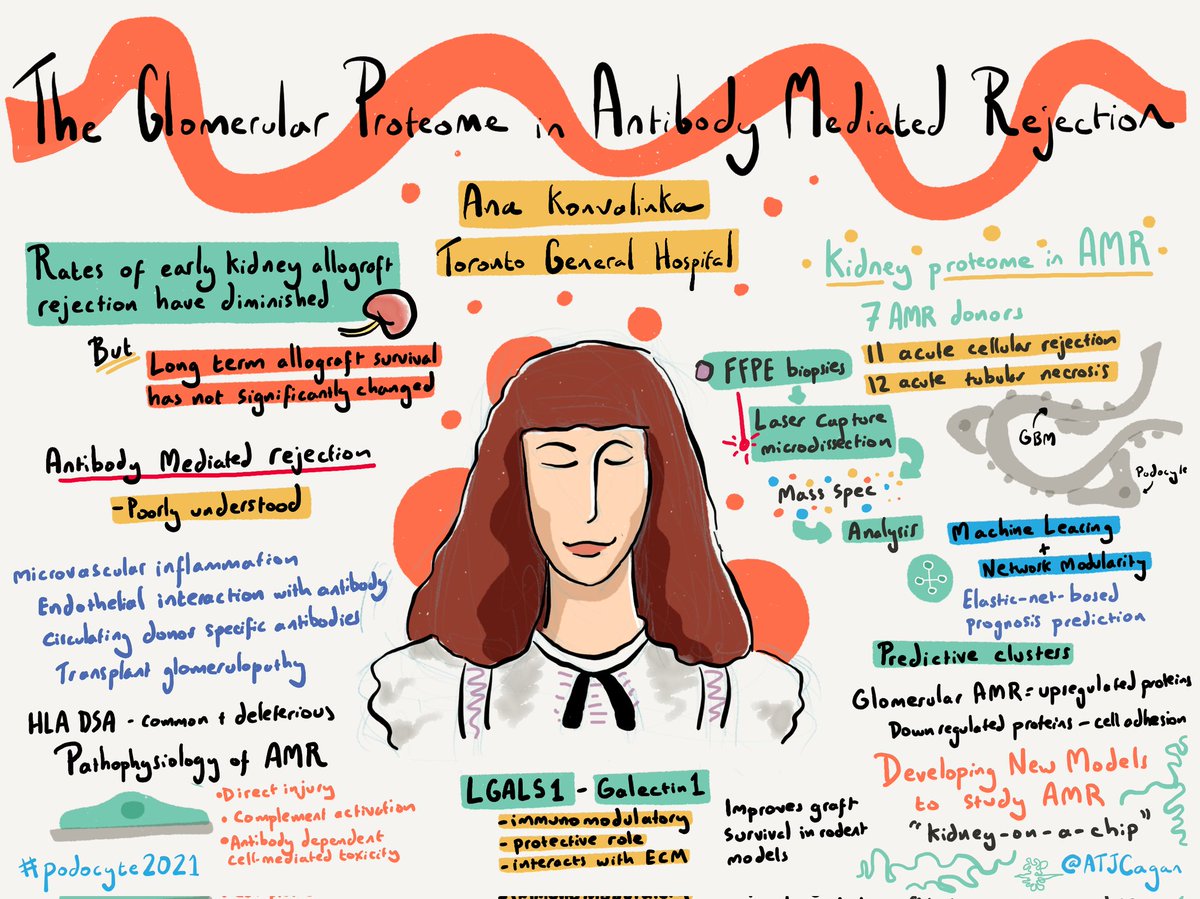 The Glomerular Proteome in Antibody Mediated Rejection
Ana Konvalinka
Toronto General Hospital
Rates of early kidney allograft
rejection have diminished
But
Long term allograft survival
has not significantly changed
Antibody Mediated rejection
- Poorly understood
Microvascular inflammation
Endothelial interaction with antibody
Circulating donor specific antibodies
Transplant glomerulopathy
HLA DSA - common + deleterious
Pathophysiology of AMR
• Direct injury
• Complement activation
• Antibody dependent
cell-mediated toxicity
#podocyte2021
LGALS1 - Galectin1
- immunomodulatory
- protective role
- interacts with ECM
Improves graft
survival in rodent
models
Kidney proteome in AMR
7 AMR donors
11 acute cellular rejection
12 acute tubular necrosis
FFPE biopsies
Laser Capture
microdissection
Mass Spec
Analysis
GBM
Podocyte
Machine Learing
+
Network Modularity
Elastic-net-based
prognosis prediction
Predictive clusters
Glomerular AMR = upregulated proteins
Down regulated proteins - cell adhesion
Developing New Models
to study AMR
"kidney-on-a-chip"
@ATJCagan